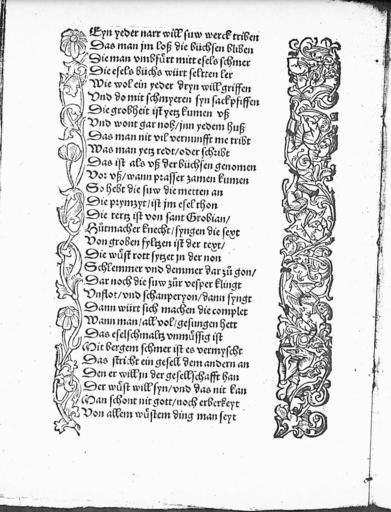 Eyn yeder narr will suw werck triben
Das man jm loß die büchsen bliben
Die man vmbfürt mitt esels schmer
Die esels büchs würt seltten ler
Wie wol ein yeder dryn will griffen
Vnd do mit schmyeren syn sackpfiffen
Die grobheit ist yetz kumen vß
Vnd wont gar noh / jnn yedem huß
Das man nit vil vernunfft me tribt
Was man yetz redt / oder schribt
Das ist als vß der büchsen genomen
Vor vß / wann prasser zamen kumen
So hebt die suw die metten an
Die prymzyt / ist jm esel thon
Die tertz ist von sant Grobian /
Hůtmacher knecht / syngen die sext
Von groben fyltzen ist der text /
Die wüst rott sytzet jn der non
Schlemmer vnd demmer dar zů gon /
Dar noch die suw zůr vesper klingt
Vnflot / vnd schanperyon / dann syngt
Dann würt sich machen die complet
Wann man / all vol / gesungen hett
Das eselschmaltz vnmüssig ist
Mit bergem schmer ist es vermyscht
Das stricht ein gesell dem andern an
Den er will jn der gesellschafft han
Der wüst will syn / vnd das nit kan
Man schont nit gott / noch erberkeyt
Von allem wüstem ding man seyt